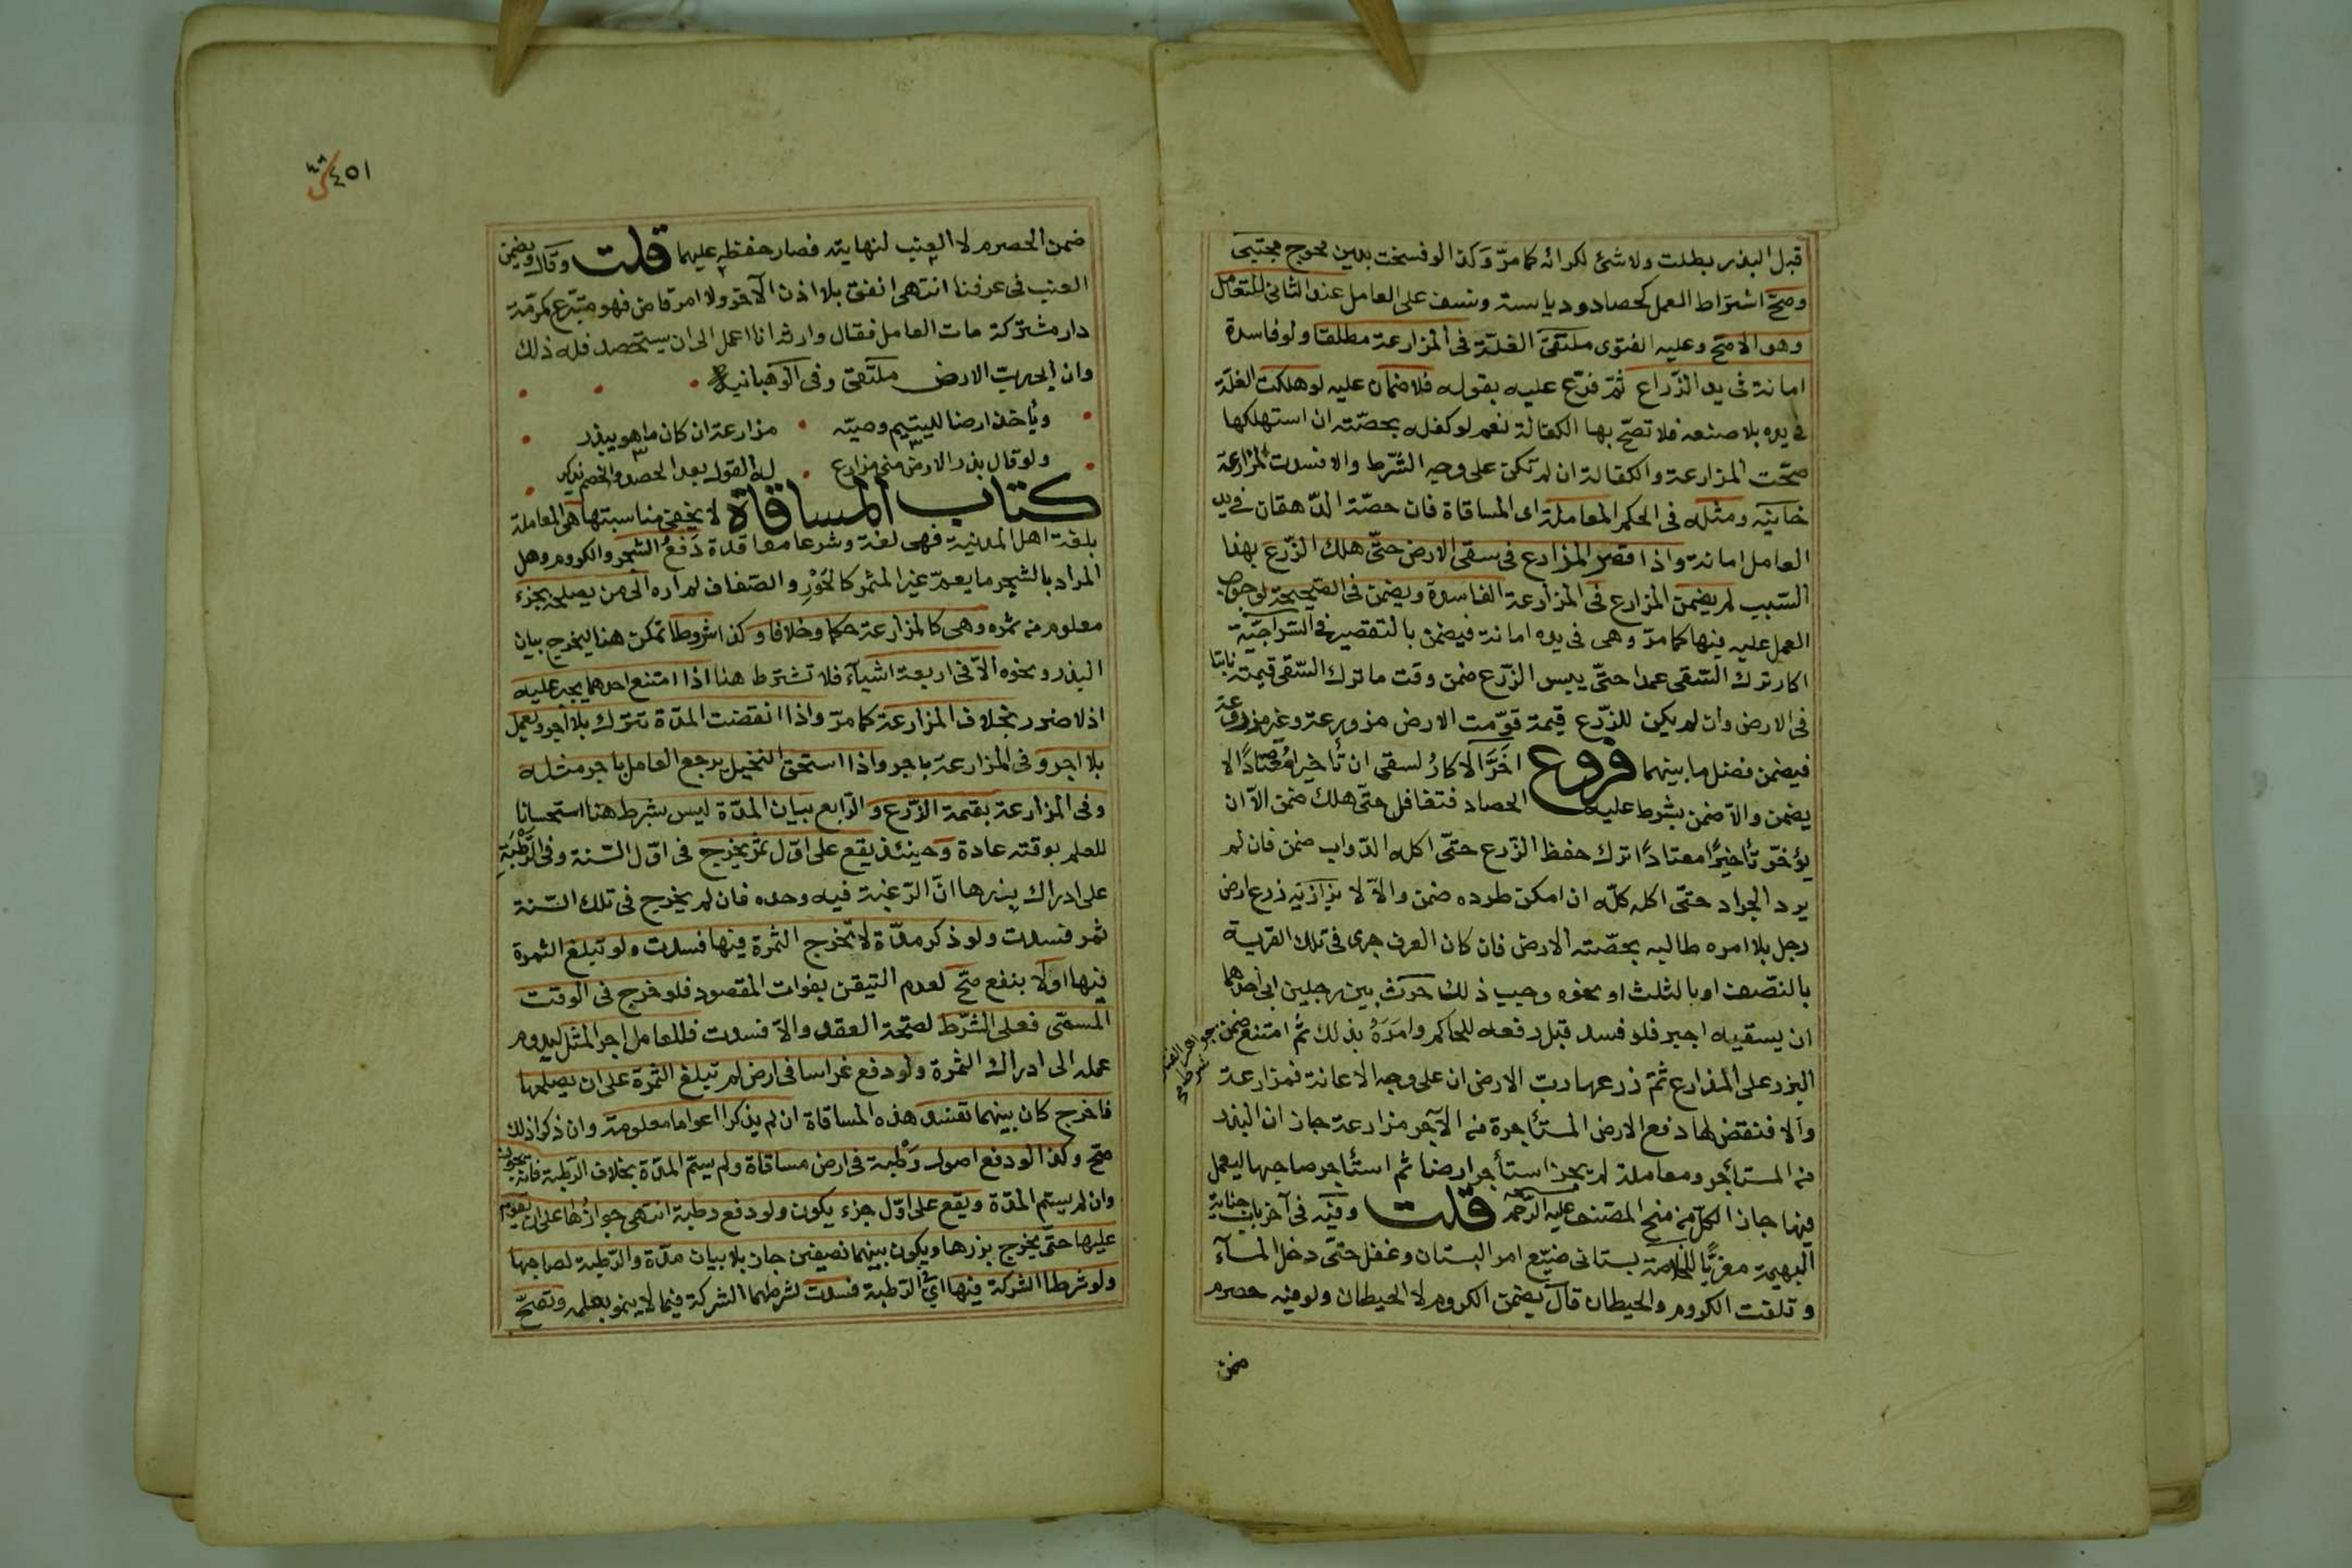 قبل البذر بطلت ولا شئ لكرابه كما مرّ وكذا لو فسخت بدين محوج مجتبى
وصحّ اشتراط العمل كحصاد ودياسة ونسف على العامل عند الثانى للتعامل
وهو الاصح وعليه الفتوى ملتقى الغلّة فى المزارعة مطلقا ولو فاسدة
امانة فى يد الزّراع ثمّ فرّع عليه بقوله فلا ضمان عليه لو هلكت الغلّة
فى يده بلا صنعه فلا تصحّ بها الكفالة نعم لو كفله بحصّته ان استهلكها
صحّت المزارعة والكفالة ان لم تكن على وجه الشّرط والا فسدت المزارعة
خانيّه ومثله فى الحكم المعاملة اى المساقاة فان حصّة الدّهقان فى يد
العامل امانة واذا قصّر المزارع فى سقى الارض حتّى هلك الزّرع بهذا
السّبب لم يضمن المزارع فى المزارعة الفاسدة ويضمن فى الصّحيحة لوجوب
العمل عليه فيها كما مرّ وهى فى يده امانة فيضمن بالتقصير فى السّراجيّة
اكار ترك السّقى عمدا حتّى يبس الزّرع ضمن وقت ما ترك السّقى قيمته نابتا
فى الارض وان لم يكن للزّرع قيمة قوّمت الارض مزروعة وغير مزروعة
فيضمن فضل ما بينهما فروع اخّر الاكارُ لسقى ان تأخيرا معتادًا لا
يضمن والاّ ضمن بشرط عليه الحصاد فتغافل حتّى هلك ضمن الاّ ان
يؤخّر تأخيرًا معتادًا ترك حفظ الزّرع حتّى اكله الدّواب ضمن فان لم
يرد الجراد حتّى اكله كلّه ان امكن طرده ضمن والاّ لا بزازيّه زرع ارض
رجل بلا امره طالبه بحصّته الارض فان كان العرف جرى فى تلك القرية
بالنّصف او بالثلث او نحوه وجب ذلك حرث بين رجلين ابى احدهما
ان يسقيه اجبر فلو فسد قبل رفعه للحاكم وامرَهُ بذلك ثمّ امتنع ضمن جواهر الفتاوى شرط
البزر على المزارع ثمّ زرعها ربّ الارض ان على وجه الاعانة فمزارعة
والا فنقض لها دفع الارض المستأجرة من الآجر مزارعة جاز ان البذر
من المستأجر ومعاملة لم يجز استأجر ارضا ثم استأجر صاحبها ليعمل
فيها جاز الكلّ من منح المصنف عليه الرحمه قلت وفيه فى آخر باب جناية
البهيمة معزيًّا للخلاصة بستانى ضيّع امر البستان وغفل حتّى دخل المآء
وتلفت الكروم والحيطان قال يضمن الكروم لا الحيطان ولو فيه حصرم
ضمن
٤٥١
ضمن الحصرم لا العنب لنهايته فصار حفظه عليهما قلت وقال ويضمن
العنب فى عرفنا انتهى انفق بلا اذن الآخر ولا امر قاض فهو متبّرع كمرمّة
دار مشتركة مات العامل فقال وارثه انا اعمل الى ان يستحصد فله ذلك
وان ابى ربّ الارض ملتقى وفى الوهبانيه
ويأخذ ارضا لليتيم وصيّه مزارعة ان كان ما هو يبذر
ولو قال بذر الارض منى مزارع له القول بعد الحصد والخصم ينكر
كتاب المساقاة لا يخفى مناسبتها هى المعاملة
بلغة اهل المدينة فهى لغة وشرعا معاقدة دَفعُ الشجر والكروم وهل
المراد بالشجر ما يعمّ غير المثمر كالحَوْرِ والصّفصاف لم اره الى من يصلحه بجزء
معلوم من ثمره وهى كالمزارعة حكما وخلافا وكذا شروطا تمكن هنا ليخرج بيان
البذر ونحوه الاّ فى اربعة اشيآء فلا تشترط هنا اذا امتنع احدهما يجبر عليه
اذ لا ضرر بخلاف المزارعة كما مرّ واذا انقضت المدّة تترك بلا اجر ويعمل
بلا اجر وفى المزارعة باجر واذا استحق النخيل يرجع العامل باجر مثله
وفى المزارعة بقيمة الزّرع والرّابع بيان المدّة ليس بشرط هنا استحسانا
للعلم بوقته عادة وحينئذ يقع على اوّل ثمر يخرج فى اوّل السّنة وفى الرَّطْبَةِ
على ادراك بزرها انّ الرّغبة فيه وحده فان لم يخرج فى تلك السّنة
ثمر فسدت ولو ذكر مدّة لا تخرج الثمرة فيها فسدت ولو تبلغ الثمرة
فيها او لا بنفع صحّ لعدم التيقن بفوات المقصود فلو خرج فى الوقت
المسمّى فعلى الشّرط لصحّة العقد والاّ فسدت فللعامل اجر المثل ليدوم
عمله الى ادراك الثمرة ولو دفع غراسا فى ارض لم تبلغ الثمرة على ان يصلحها
فما خرج كان بينهما تفسد هذه المساقاة ان لم يذكرا اعواما معلومة وان ذكرا ذلك
صحّ وكذا لو دفع اصول رَطْبة فى ارض مساقاة ولم يسمّ المدّة بخلاف الرّطبة فانّه يجوز
وان لم يسمّ المدّة ويقع على اوّل جزء يكون ولو دفع رطبة انتهى جوازُها على ان يقوم
عليها حتّى يخرج بزرها ويكون بينهما نصفين جاز بلا بيان مدّة والرّطبة لصاحبها
ولو شرطا الشركة فيها اىْ الرّطبة فسدت لشرطهما الشركة فيما لا ينمو بعمله وتصحّ